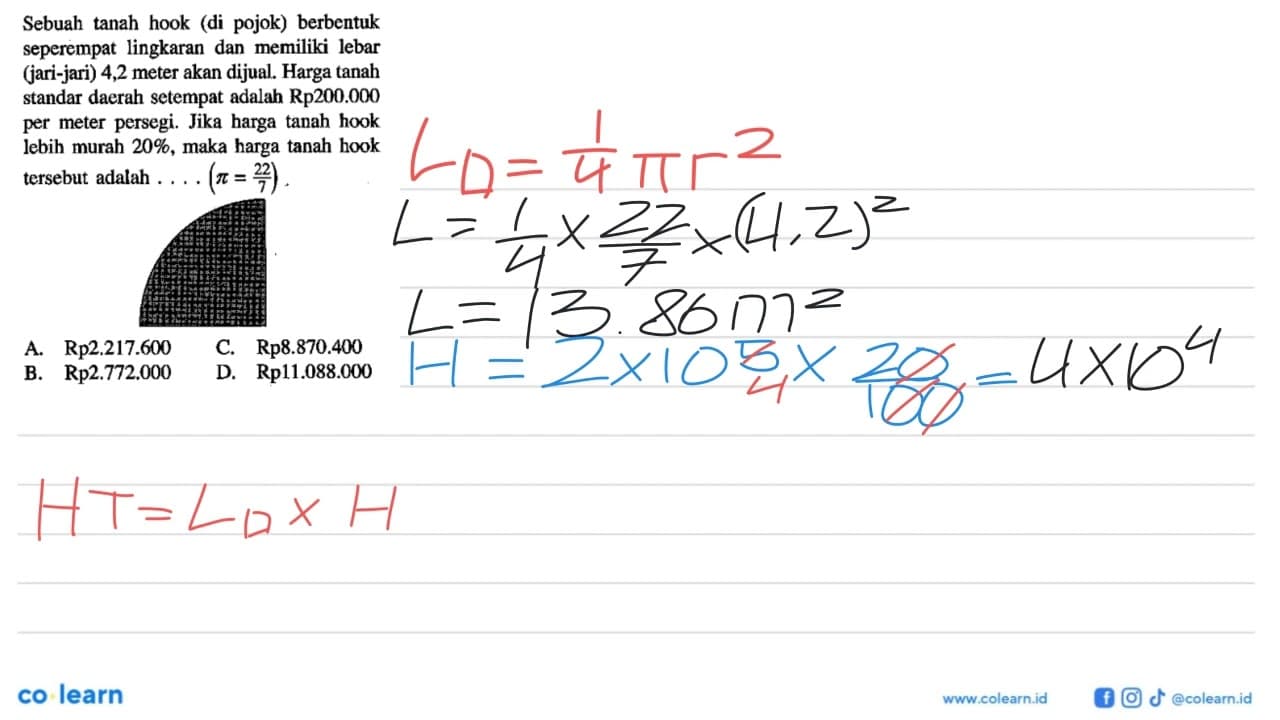 Sebuah tanah hook (di pojok) berbentuk
seperempat lingkaran dan memiliki lebar
(jari-jari) 4,2 meter akan dijual. Harga tanah
standar daerah setempat adalah Rp200.000
per meter persegi. Jika harga tanah hook
lebih murah 20%, maka harga tanah hook
tersebut adalah . . . . (π = 22/7).
A. Rp2.217.600 C. Rp8.870.400
B. Rp2.772.000 D. Rp11.088.000
L◻ = 1/4 π r²
L = 1/4 × 22/7 × (4,2)²
L = 13.86 m²
H = 2 × 10⁵ 4 × 20/100 = 4 × 10⁴
HT = L◻ × H
co learn
www.colearn.id @colearn.id